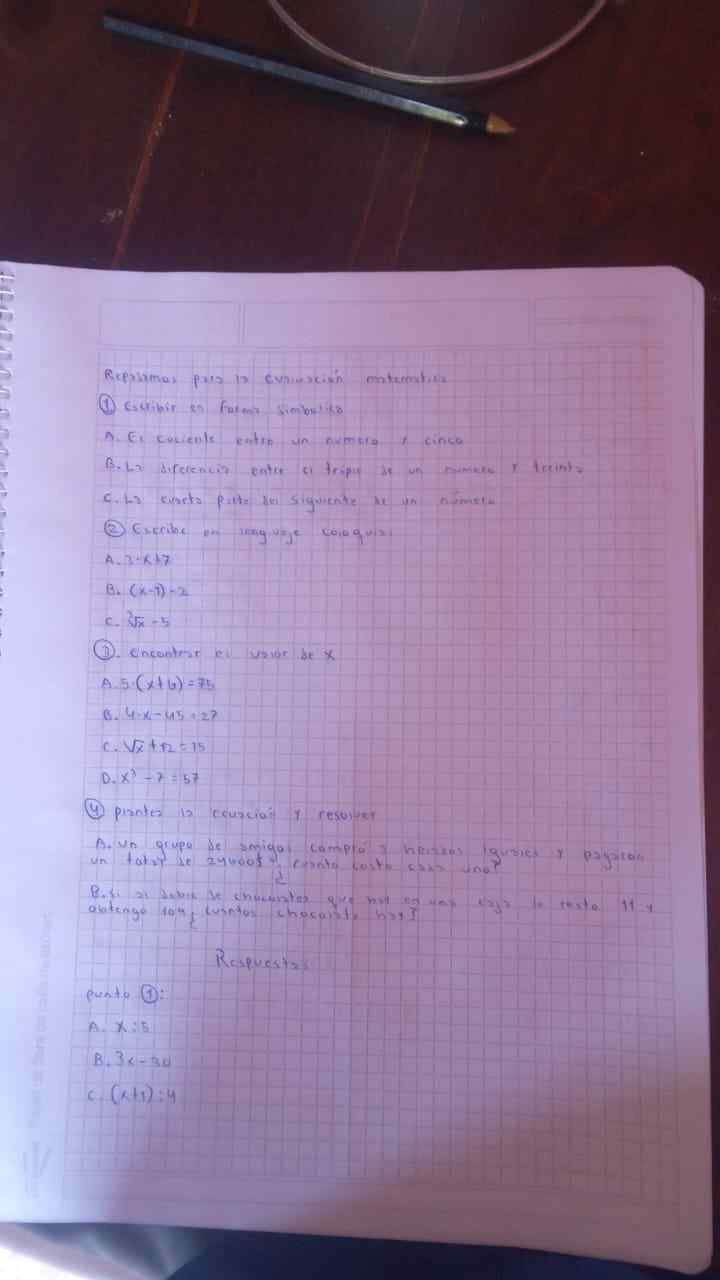 Repasamos para la evaluación matematica
① Escribir en forma simbolica
A. El cociente entre un numero y cinco
B. La diferencia entre el triple de un numero y treinta
C. La cuarta parte del siguiente de un número
② Escribe en lenguaje coloquial
A. 3·x+7
B. (x-1)-2
C. ³√x - 5
③. encontrar el valor de x
A. 5·(x+6)=75
B. 4·x-45=27
C. √x+12=15
D. x³-7=57
④ plantea la ecuación y resolver
A. un grupo de amigos compró 3 helados iguales y pagaron
un total de 24000$ ¿ cuanto costo cada uno?
B. Si al doble de chocolates que hay en una caja le resto 11 y
obtengo 109 ¿ cuantos chocolate hay?
Respuestas
punto ①:
A. x:5
B. 3x-30
C. (x+1):4